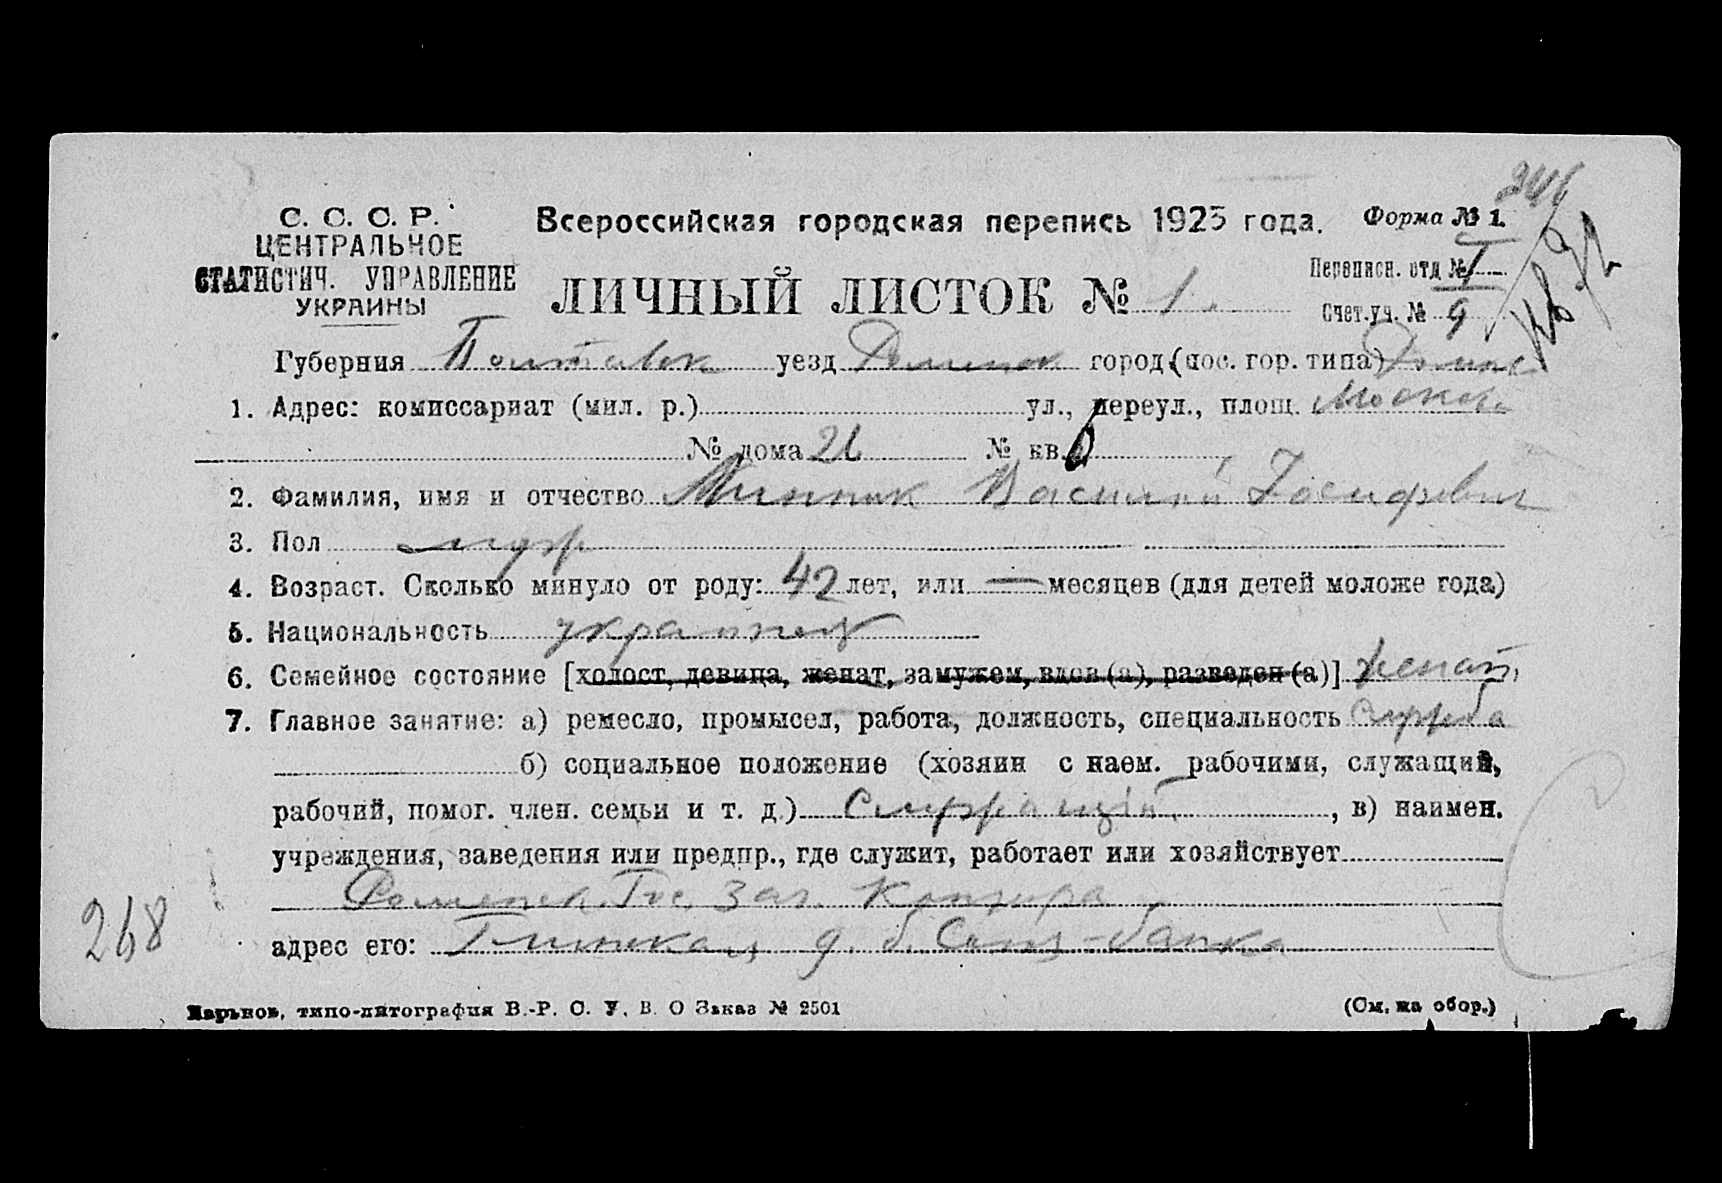 С. С. С. Р.
ЦЕНТРАЛЬНОЕ
СТАТИСТИЧ. УПРАВЛЕНИЕ
УКРАИНЫ
Всероссийская городская перепись 1923 года. Форма № 1.
Переписн. отд № I
ЛИЧНЫЙ ЛИСТОК № 1.
Счет.уч. № 9
Губерния Полтавск уезд Роменск город (пос. гор. типа)
1. Адрес: комиссариат (мил. р.) ул., переул., площ. Москов
№ дома 26 № кв.
2. Фамилия, имя и отчество Минник Василий Иосифович
3. Пол муж
4. Возраст. Сколько минуло от роду: 42 лет, или — месяцев (для детей моложе года)
5. Национальность украинец
6. Семейное состояние [холост, девица, женат, замужем, вдов (а), разведен (а)] женат
7. Главное занятие: а) ремесло, промысел, работа, должность, специальность служба
б) социальное положение (хозяин с наем. рабочими, служащий,
рабочий, помог. член. семьи и т. д.) Служащий, в) наимен.
учреждения, заведения или предпр., где служит, работает или хозяйствует
Роменск. Гос. Заг. Контора
адрес его: д. б. Соц-банка
268
Харьков, типо-литография В.-Р. С. У. В. О Заказ № 2501
(См. на обор.)